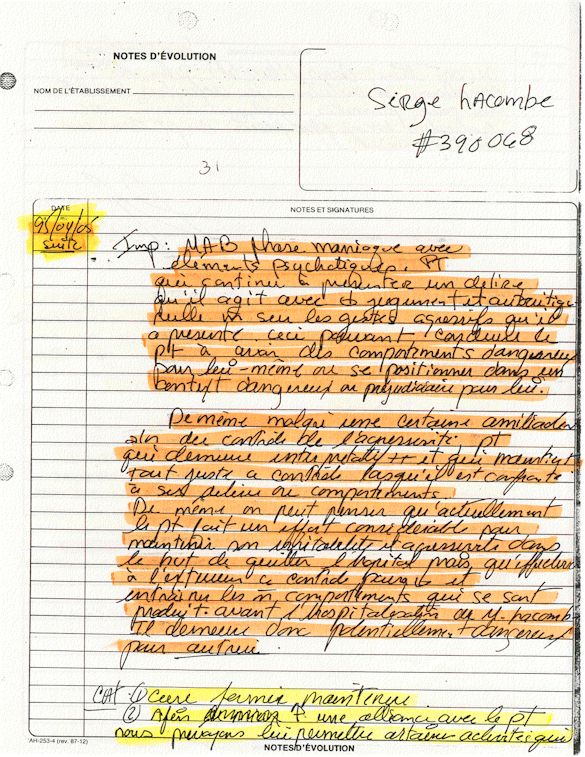 NOTES D'ÉVOLUTION
NOM DE L'ÉTABLISSEMENT
Serge Lacombe
#390048
31
DATE
NOTES ET SIGNATURES
95/04/05
suite
Imp: MAB phase maniaque avec
éléments psychotiques. PT
qui continu à présenter un délire
qu'il agit avec jugement et autocritique
nulle vu les gestes agressifs qu'il
a présenté. ceci pouvant conduire le
pt à avoir des comportements dangereux
pour lui-même ou se positionner dans un
context dangereux ou préjudiciaire pour lui.
De même malgré une certaine amélioration
du contrôle de l'agressivité pt
qui demeure irritable ++ et qui maintient
tout juste a contrôle lorsqu'il est confronté
à ses délires ou comportements.
De même on peut penser qu'actuellement
le pt fait un effort considérable pour
maintenir son irritabilité et agressivité dans
le but de quitter l'hôpital mais qu'effectivement
à l'extérieur ce contrôle pourrait
entraîner les m comportements qui se sont
produit avant l'hospitalisation de M. Lacombe
Il demeure donc potentiellement dangereux
pour autrui.
CAT ① Cure fermée maintenue
② Après une alliance avec le pt
nous prévoyons lui permettre certaines activités qui
AH-253-4 (rev. 87-12)
NOTES D'ÉVOLUTION